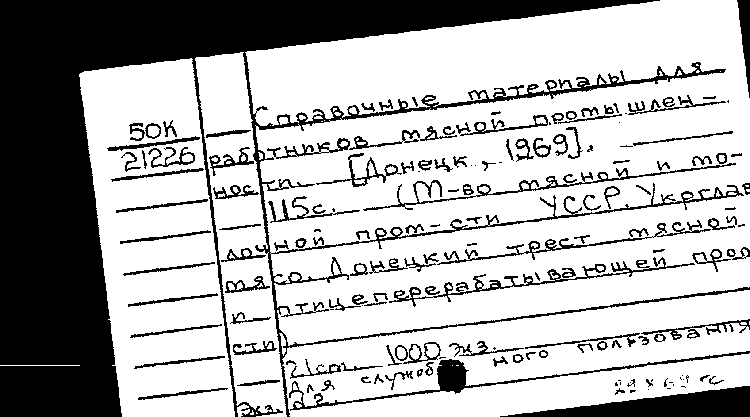 50К
21226
Справочные материалы для
работников мясной промышлен-
ности. [Донецк, 1969].
115с. (М-во мясной и мо-
лочной пром-сти УССР. Укрглав
мясо. Донецкий трест мясной
и птицеперерабатывающей пром
сти).
21см. 1000 экз.
Для служебного пользования
Экз.